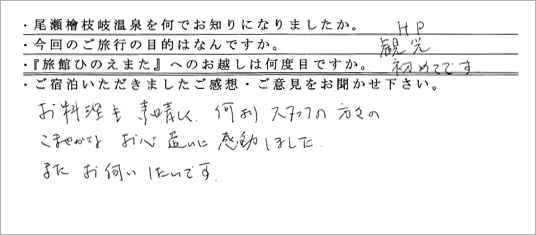 ・尾瀬檜枝岐温泉を何でお知りになりましたか。 HP
・今回のご旅行の目的はなんですか。 観光
・『旅館ひのえまた』へのお越しは何度目ですか。 初めてです
・ご宿泊いただきましたご感想・ご意見をお聞かせ下さい。
お料理も素晴しく、何より スタッフの方々の
こまやかな お心遣いに感動しました。
また お伺いしたいです。